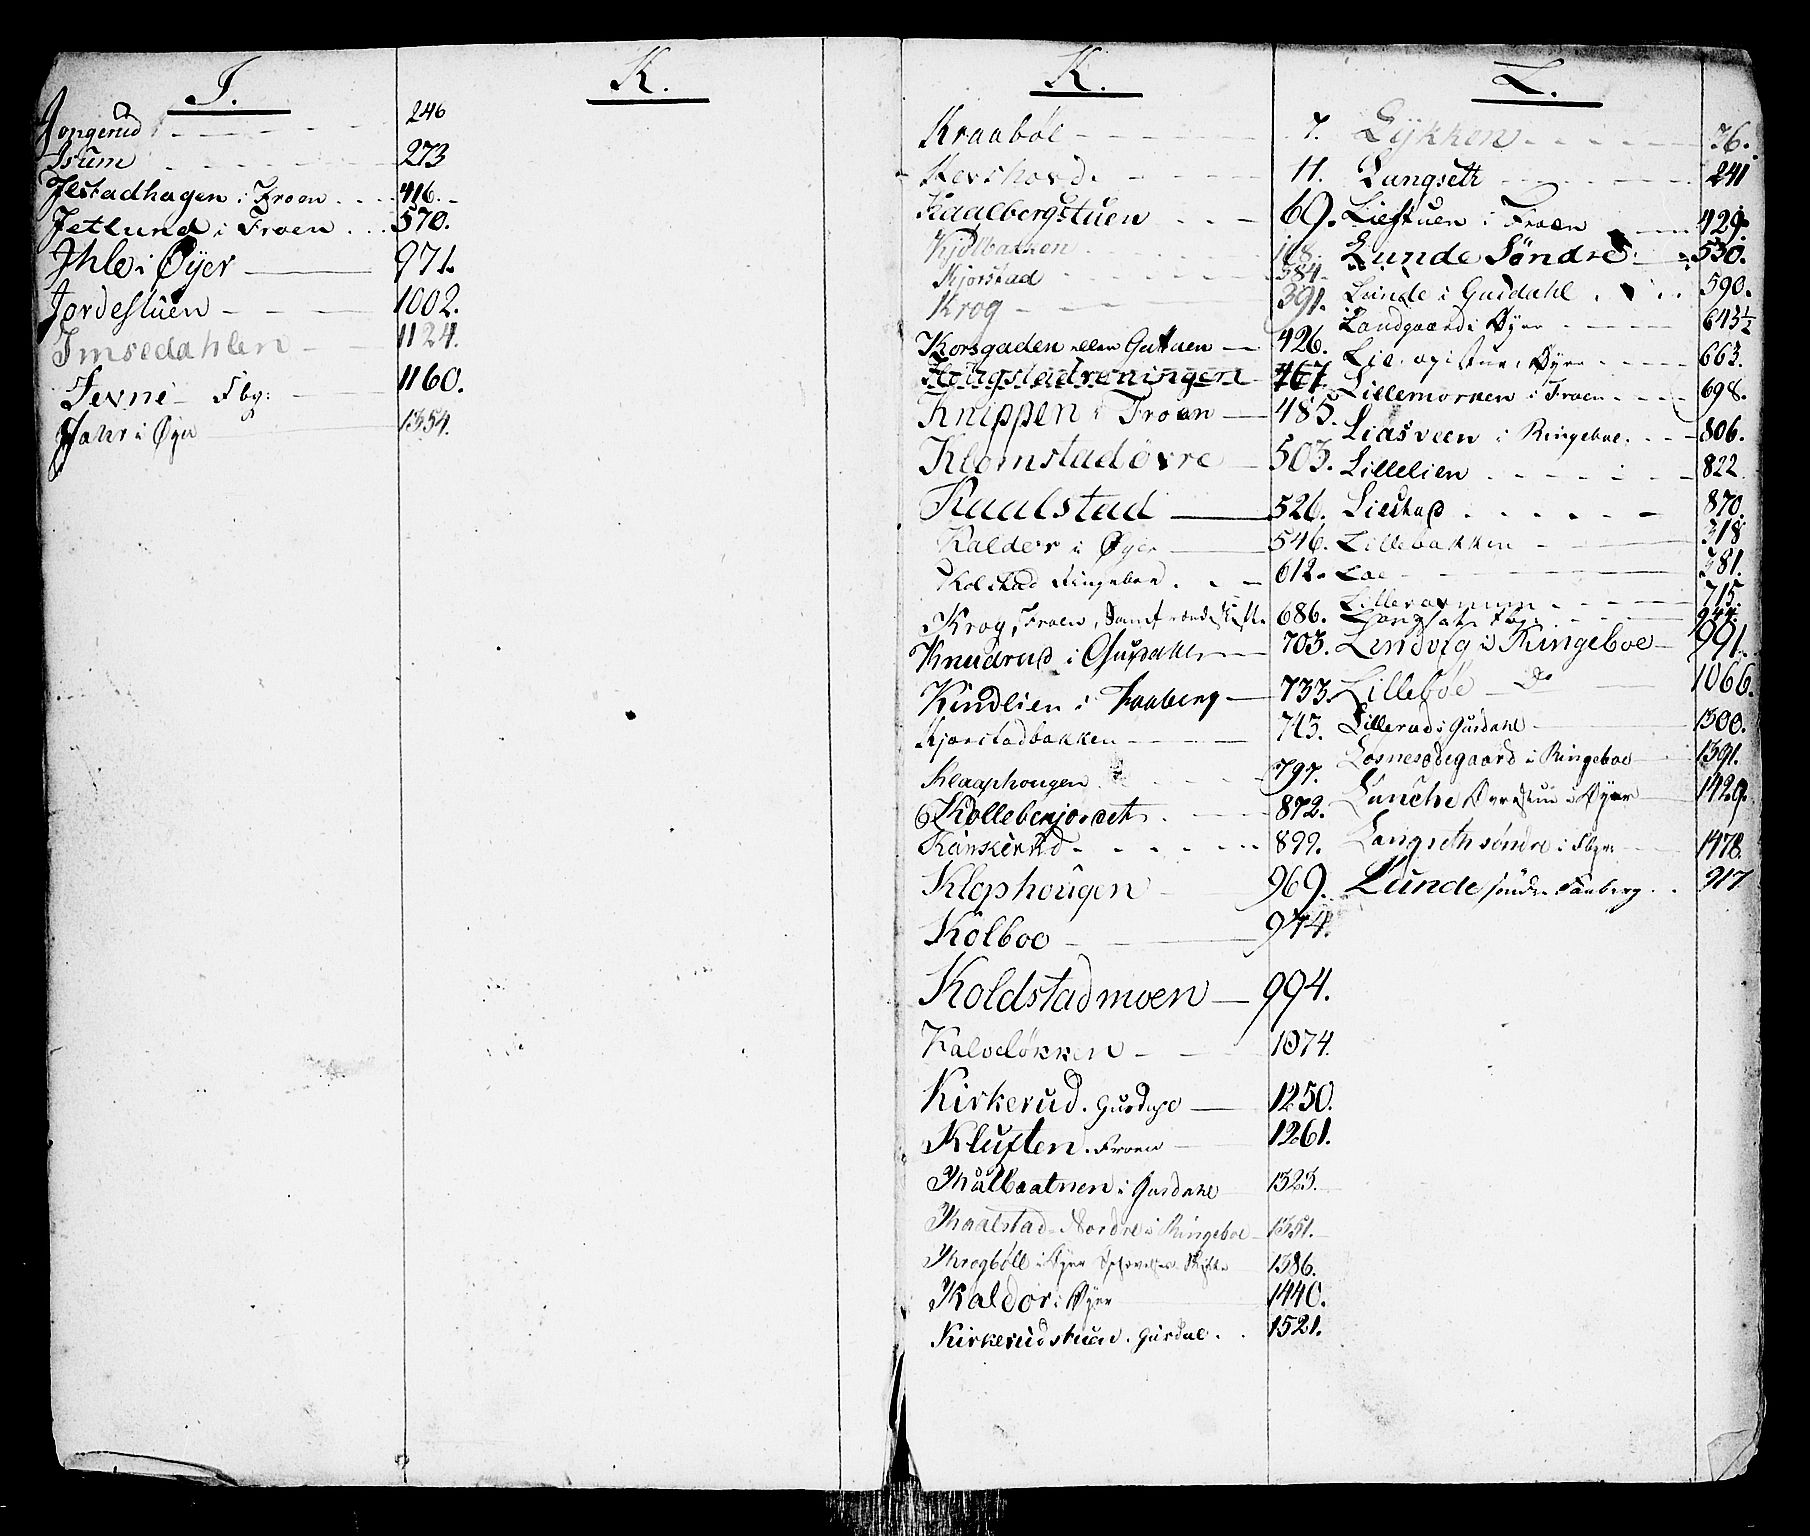 I.
Jongerud 246
Isum 273
Ilstadhagen i Froen 416.
Jetlund i Froen 570.
Ihle i Øyer 971.
Jordestuen 1002.
Imsedahlen 1124.
Jevne Fbg: 1160.
Jahr i Øyer 1354.
K.
K.
Kraabøl 7.
11.
Kaalbergstuen 69.
Kjølbakken 118.
Kjorstad 384
Krog 391.
Korsgaden eller Gattuen 426.
Haugstadreningen 467
Knippen i Froen 485.
Klomstad øvre 503.
Kaalstad 526.
Kalder i Øyer 546.
Kolstad Ringeboe 612.
Krog, Froen, 686.
Knudrud i Gusdahl 703.
Kindlien i Faaberg 733.
Kjorstadbakken 743.
Klaaphougen 797.
Kollebenjordet 872.
Kanskerud 899.
Klophougen 969.
Kolboe 974.
Koldstadmoen 994.
Kalveløkken 1074.
Kirkerud. Gusdahl 1250.
Kluften. Froen 1261.
Kalbaatnen i Gusdahl 1323.
Kaalstad Nordre i Ringeboe 1351.
Krogbøll i Øyer 1386.
Kaldor i Øyer 1440.
Kirkerudstuen. Gusdal. 1521.
L.
Lykken 36.
Lungseth 241
Liestuen i Froen 429.
Lunde Søndre 530.
Lunde i Gusdahl 590.
Landgaard i Øyer 643½
Lie i Øyer 663.
Lillemorken i Froen 698.
Liasveen i Ringeboe. 806.
Lillelien 822
Liestad 870.
Lillebakken 318
Loe 381.
715.
944.
Lindvig i Ringeboe 991.
Lillebøe Do 1066.
Lillerud i Gusdahl 1300.
Losnesødegaard i Ringeboe 1391.
Lunche Øvrestue i Øyer 1429.
Langseth søndre i Fbg: 1478.
Lunde søndre Faaberg 917